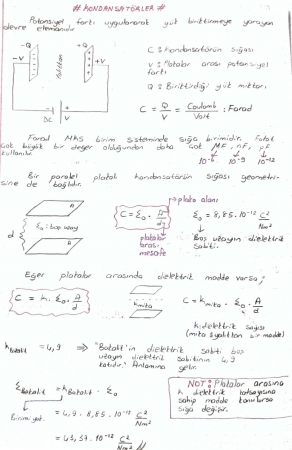 # KONDANSATÖRLER #
Potansiyel farkı uygulanarak yük biriktirmeye yarayan
devre elemanıdır.
-Q +Q
-V +V
DC
C: Kondansatörün sığası
V: Plakalar arası potansiyel
farkı
Q: Biriktirdiği yük miktarı
C = Q/V = Coulomb/Volt : Farad
Farad MKS birim sisteminde sığa birimidir. Fakat
çok büyük bir değer olduğundan daha çok μF, nF, pF
kullanılır.
10⁻⁶ 10⁻⁹ 10⁻¹²
Bir paralel plakalı kondansatörün sığası geometri-
sine de bağlıdır.
plaka alanı
d
ε₀: boş uzay
C = ε₀ . A/d
plakalar
arası
mesafe
ε₀ = 8,85.10⁻¹² C²/Nm²
Boş uzayın dielektrik
sabiti.
Eğer plakalar arasında dielektrik madde varsa;
C = k. ε₀. A/d
kmika
C = kmika . ε₀ . A/d
k: dielektrik sabiti
(mika yalıtkan bir madde)
kbakalit = 4,9 ⇒ "Bakalit'in dielektrik sabiti boş
uzayın dielektrik sabitinin 4,9
katıdır." Anlamına gelir.
εBakalit = kBakalit . ε₀
= 4,9 . 8,85.10⁻¹² C²/Nm²
= 43,37 . 10⁻¹² C²/Nm² //
NOT: Plakalar arasına
k dielektrik katsayısına
sahip madde konulursa
sığa değişir.